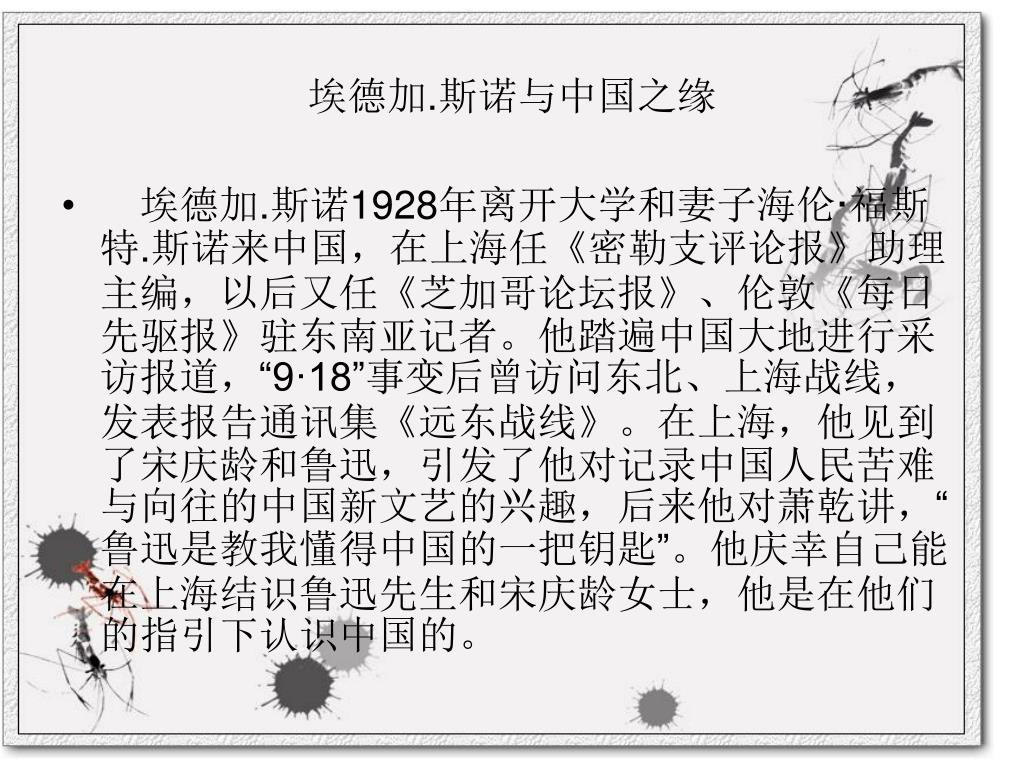 埃德加.斯诺与中国之缘
• 埃德加.斯诺1928年离开大学和妻子海伦·福斯
特.斯诺来中国，在上海任《密勒支评论报》助理
主编，以后又任《芝加哥论坛报》、伦敦《每日
先驱报》驻东南亚记者。他踏遍中国大地进行采
访报道，“9·18”事变后曾访问东北、上海战线，
发表报告通讯集《远东战线》。在上海，他见到
了宋庆龄和鲁迅，引发了他对记录中国人民苦难
与向往的中国新文艺的兴趣，后来他对萧乾讲，“
鲁迅是教我懂得中国的一把钥匙”。他庆幸自己能
在上海结识鲁迅先生和宋庆龄女士，他是在他们
的指引下认识中国的。